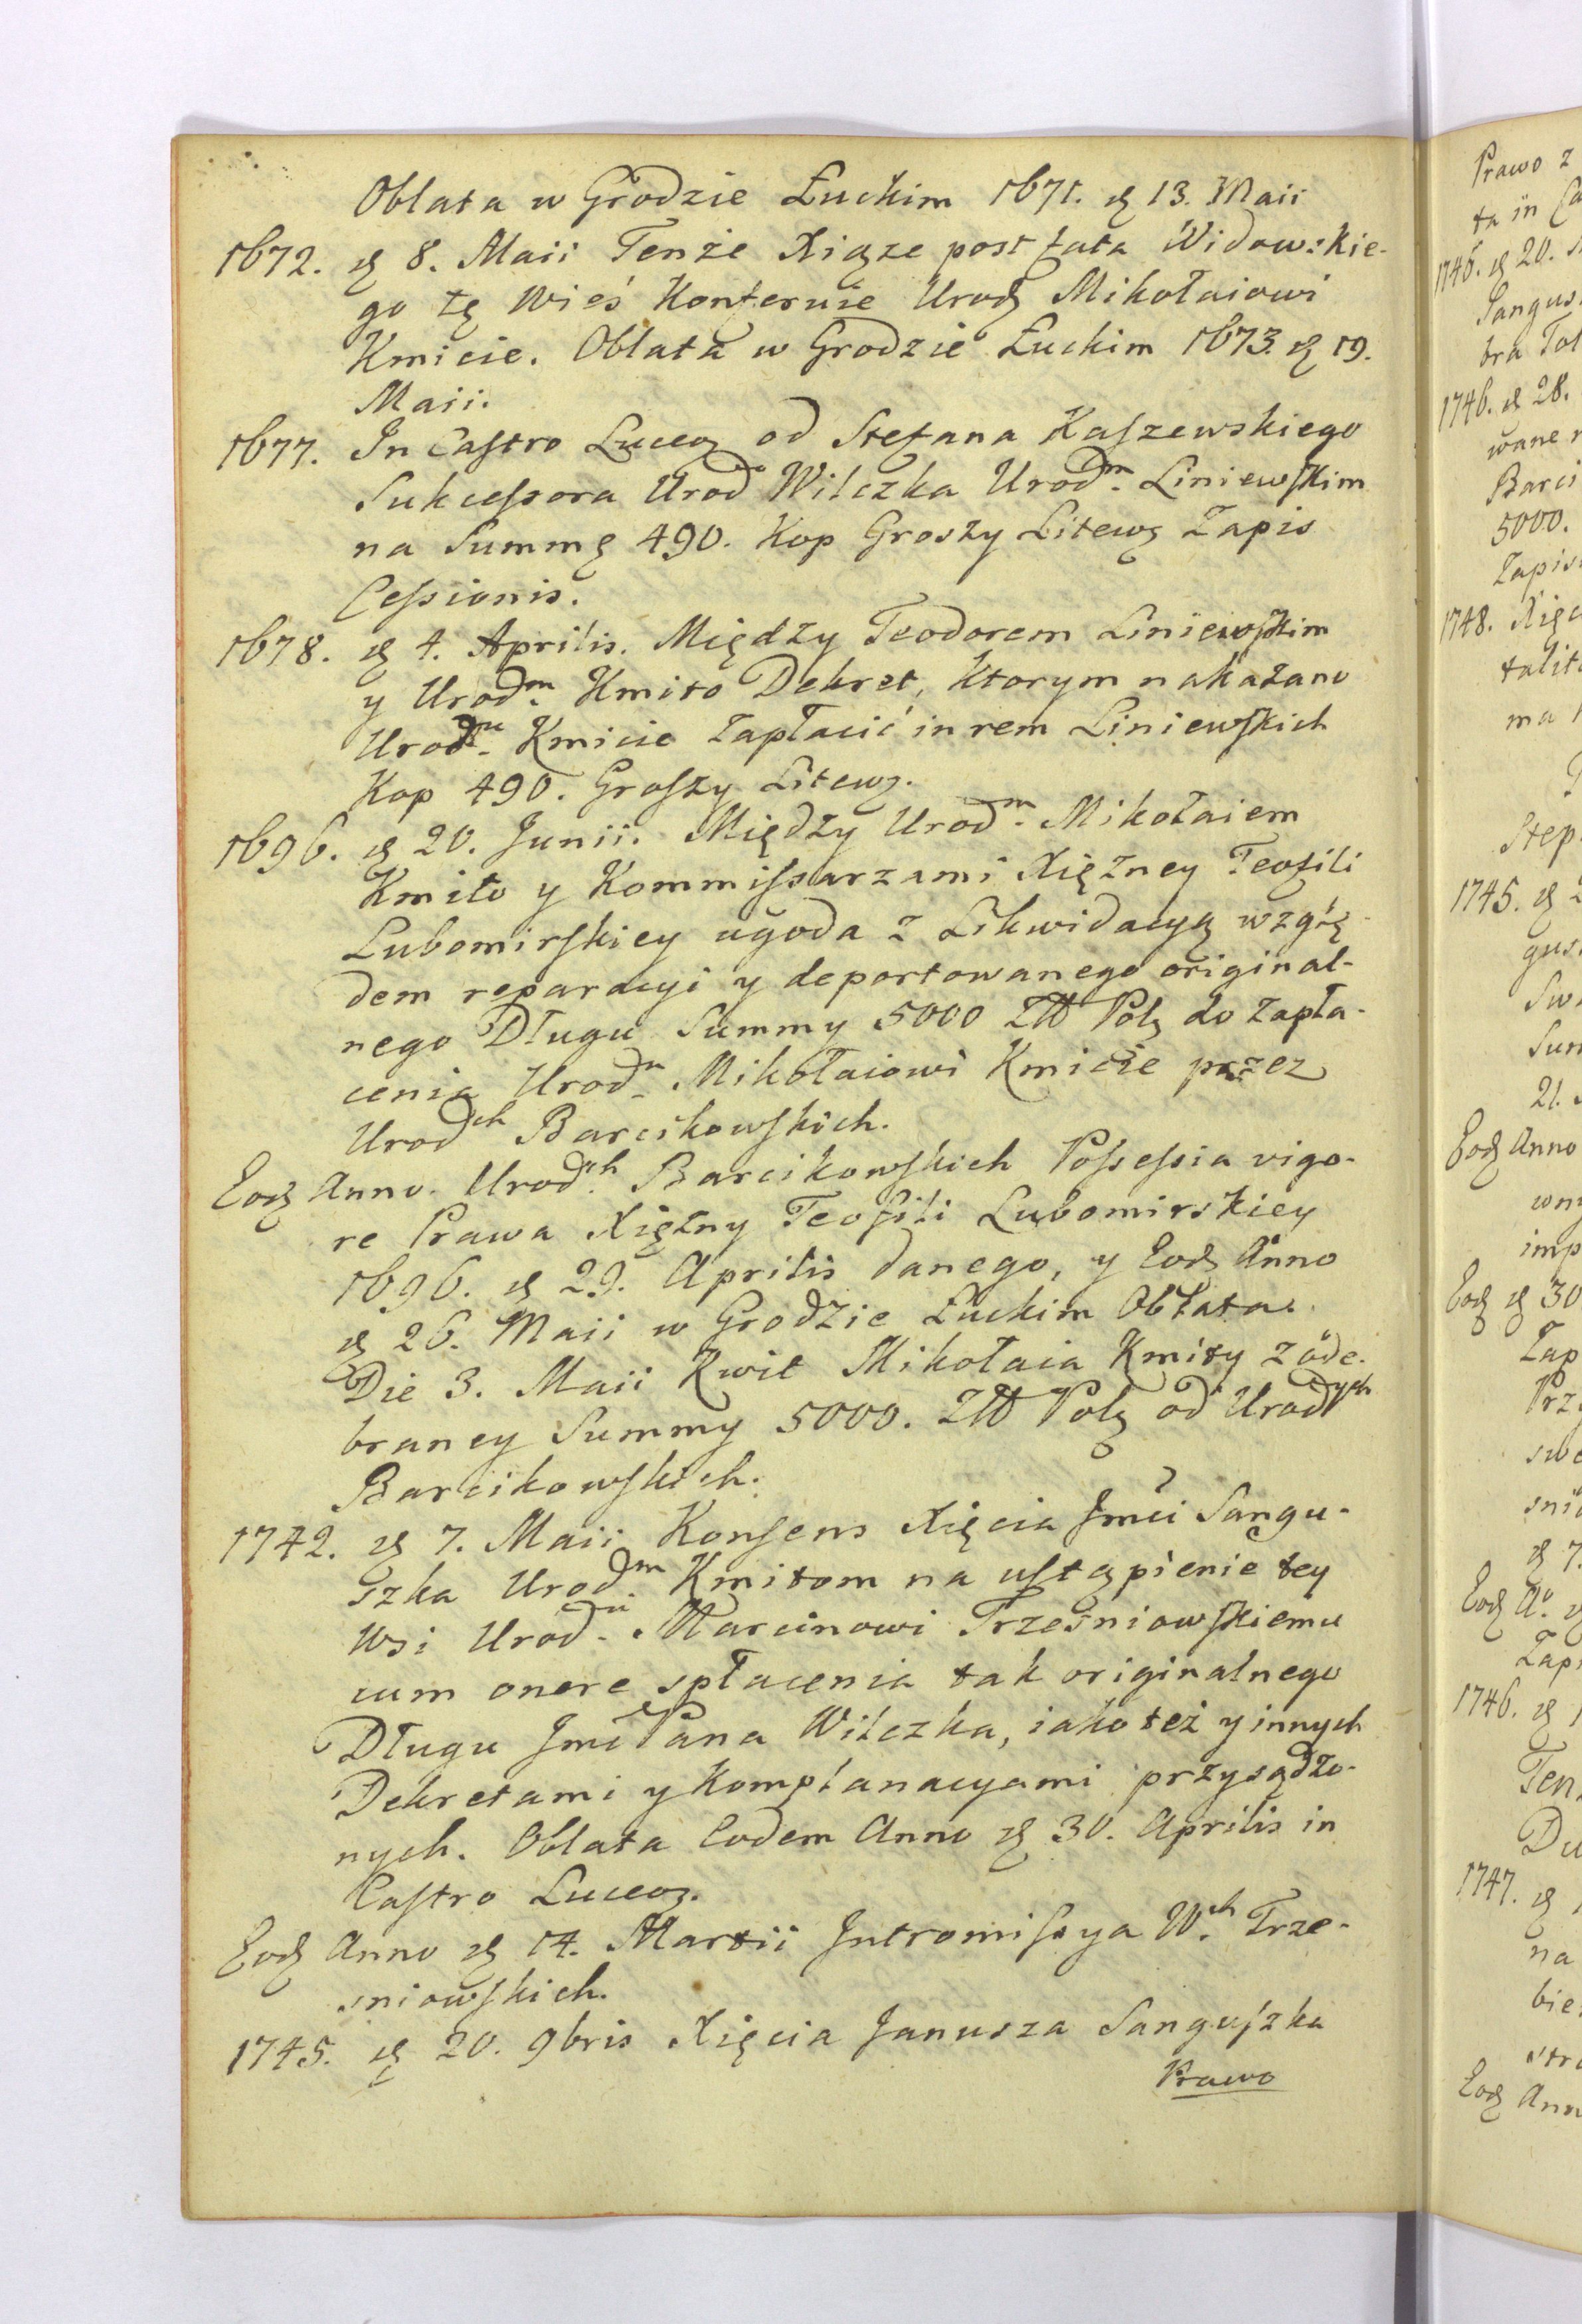 Oblata w Grodzie Łuckim 1671. d 13. Maii
1672. d 8. Maii Tenże Xiąze post fata Widawskie-
go tę Wieś Konferuie Urodz Mikołaiowi
Kmicie. Oblata w Grodzie Łuckim 1673. d 19.
Maii.
1677. In Castro Luceoȝ od Stefana Kaszewskiego
Sukcessora Urod Wilczka Urodm. Liniewskim
na Summę 490. Kop Groszy Litewȝ Zapis
Cessionis.
1678. d 4. Aprilis. Między Teodorem Liniewskim
y Urodm. Kmito Dekret, ktorym nakazano
Urodu. Kmicie zapłacić in rem Liniewskich
Kop 490. Groszy Litewȝ.
1696. d 20. Junii. Między Urodm. Mikołaiem
Kmito y Kommissarzami Xiężney Teofili
Lubomirskiey ugoda z Likwidacyą wzglę-
dem reparacyi y deportowanego original-
nego Długu Summy 5000 Złł Polȝ do zapła-
cenia Urodu. Mikołaiowi Kmicie przez
Urodch Barcikowskich.
Eodȝ Anno. Urodch. Barcikowskich Possessia vigo-
re Prawa Xiężny Teofili Lubomirskiey
1696. d 29. Aprilis danego, y Eodȝ Anno
d 26. Maii w Grodzie Łuckim Oblata.
Die 3. Maii Kwit Mikołaia Kmity z ode-
braney Summy 5000. Złł Polȝ od Urodych
Barcikowskich.
1742. d 7. Maii Konsens Xięcia Jmći Sangu-
szka Urodm. Kmitom na ustąpienie tey
Wsi Urodu. Marcinowi Trzesniowskiemu
cum onere spłacenia tak originalnego
Długu Jmć Pana Wilczka, iako też y innych
Dekretami y Komplanacyami przysądzo-
nych. Oblata Eodem Anno d 30. Aprilis in
Castro Luceoȝ.
Eodȝ Anno d 14. Martii Intromissya W.ch Trze-
sniowskich.
1745. d 20. 9bris Xięcia Janusza Sanguszka
Prawo
Prawo z
1746. d 20.
Sangus
1746. d 28.
wane
Barci
5000.
Zapis
1748. Xięc
Step
1745. d
gus
Sum
21.
Eodȝ Anno
imp
Eodȝ d 30
Zap
Prz
d 7.
Eodȝ Ao. d
Zap
1746. d
Ten
Du
1747. d
na
bie
Eodȝ Ann